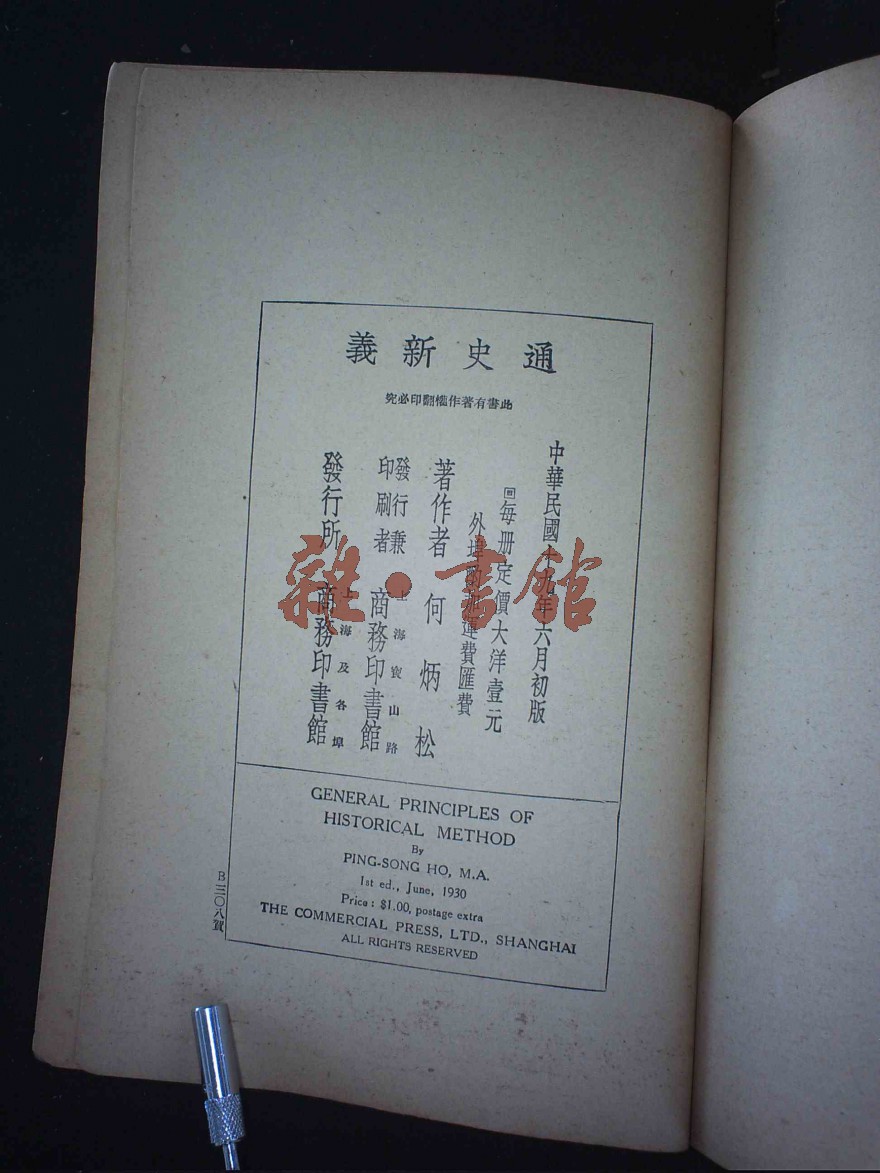 通史新義
此書有著作權翻印必究
中華民國十九年六月初版
回每册定價大洋壹元
外埠酌加運費匯費
著作者 何炳松
發行兼印刷者 上海寶山路 商務印書館
發行所 上海及各埠 商務印書館
GENERAL PRINCIPLES OF
HISTORICAL METHOD
By
PING-SONG HO, M.A.
1st ed., June, 1930
Price : $1.00, postage extra
THE COMMERCIAL PRESS, LTD., SHANGHAI
ALL RIGHTS RESERVED
B三〇八
雜·書館